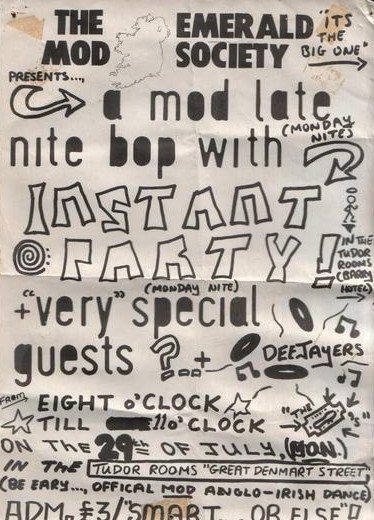 THE EMERALD "ITS
MOD SOCIETY THE
BIG ONE"
PRESENTS....,
a mod late
nite bop with (MONDAY
NITE)
INSTANT
PARTY!
IN THE
TUDOR
ROOMS
(BARRY
HOTEL)
(MONDAY NITE)
+"very" special
guests ?..+ DEEJAYERS
FROM EIGHT O'CLOCK
TILL 11 O'CLOCK
"THE
"S"
ON THE 29TH OF JULY, (MON.)
IN THE TUDOR ROOMS "GREAT DENMART STREET"
(BE EARY..., OFFICAL MOD ANGLO-IRISH DANCE)
ADM. £3/"SMART... OR ELSE"!!